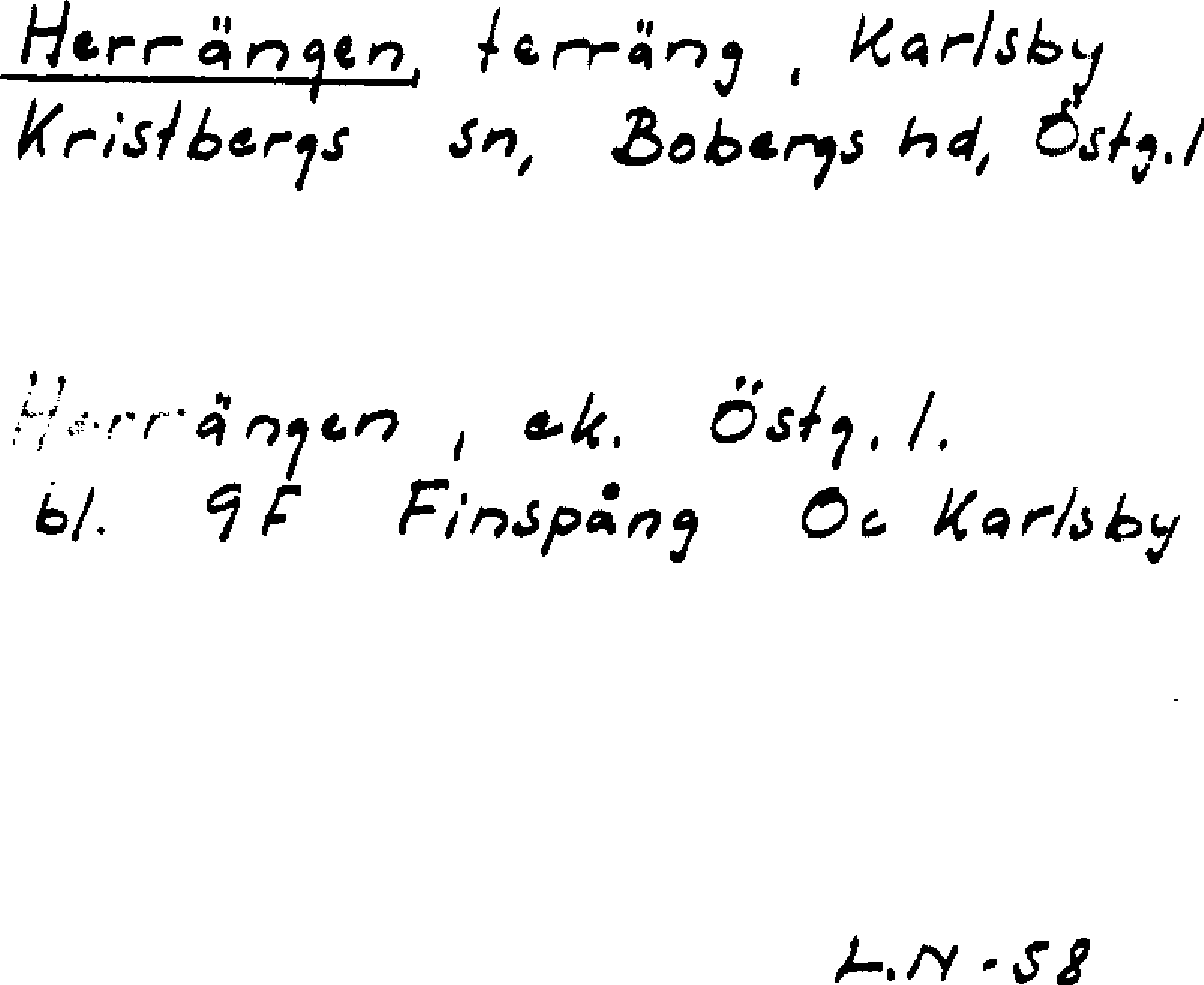 Herrängen, terräng, Karlsby
Kristbergs sn, Bobergs hd, Östg.l
Herrängen, ek. Östg.l.
bl. 9F Finspång 0c Karlsby
L.N - 58